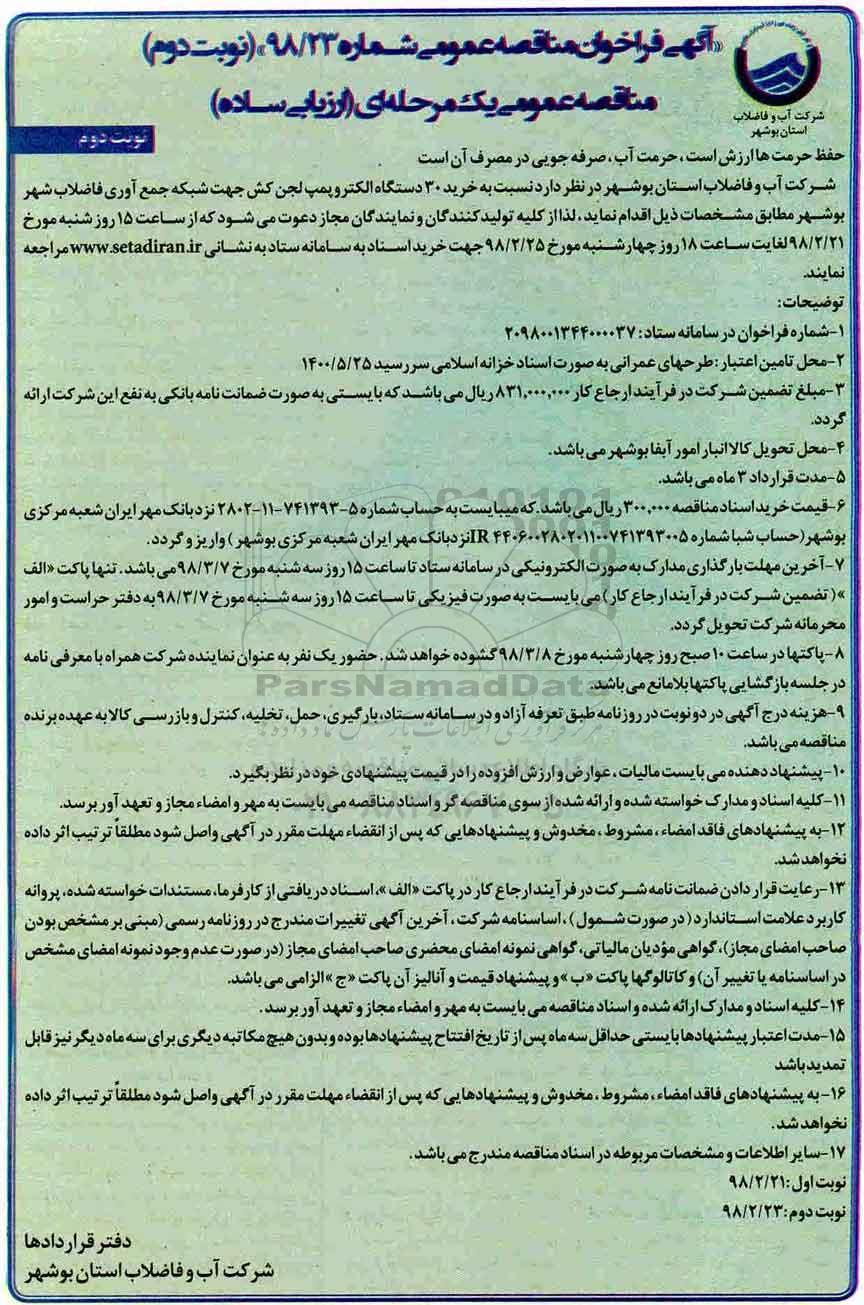 «آگهی فراخوان مناقصه عمومی شماره ۹۸/۲۳» (نوبت دوم)
مناقصه عمومی یک مرحله‌ای (ارزیابی ساده)
شرکت آب و فاضلاب
استان بوشهر
نوبت دوم
حفظ حرمت ها ارزش است ، حرمت آب ، صرفه جویی در مصرف آن است
شرکت آب و فاضلاب استان بوشهر در نظر دارد نسبت به خرید ۳۰ دستگاه الکتروپمپ لجن کش جهت شبکه جمع آوری فاضلاب شهر
بوشهر مطابق مشخصات ذیل اقدام نماید ، لذا از کلیه تولیدکنندگان و نمایندگان مجاز دعوت می شود که از ساعت ۱۵ روز شنبه مورخ
۹۸/۲/۲۱ لغایت ساعت ۱۸ روز چهارشنبه مورخ ۹۸/۲/۲۵ جهت خرید اسناد به سامانه ستاد به نشانی www.setadiran.ir مراجعه
نمایند.
توضیحات:
۱-شماره فراخوان در سامانه ستاد: ۲۰۹۸۰۰۱۳۴۴۰۰۰۰۳۷
۲-محل تامین اعتبار : طرحهای عمرانی به صورت اسناد خزانه اسلامی سررسید ۱۴۰۰/۵/۲۵
۳-مبلغ تضمین شرکت در فرآیند ارجاع کار ۸۳۱,۰۰۰,۰۰۰ ریال می باشد که بایستی به صورت ضمانت نامه بانکی به نفع این شرکت ارائه
گردد.
۴-محل تحویل کالا انبار امور آبفا بوشهر می باشد.
۵-مدت قرارداد ۳ ماه می باشد.
۶-قیمت خرید اسناد مناقصه ۳۰۰,۰۰۰ ریال می باشد.که میبایست به حساب شماره ۵-۷۴۱۳۹۳-۱۱-۲۸۰۲ نزد بانک مهر ایران شعبه مرکزی
بوشهر(حساب شبا شماره IR ۴۴۰۶۰۰۲۸۰۲۰۱۱۰۰۷۴۱۳۹۳۰۰۵ نزد بانک مهر ایران شعبه مرکزی بوشهر ) واریز و گردد.
۷-آخرین مهلت بارگذاری مدارک به صورت الکترونیکی در سامانه ستاد تا ساعت ۱۵ روز سه شنبه مورخ ۹۸/۳/۷ می باشد . تنها پاکت «الف
»( تضمین شرکت در فرآیند ارجاع کار ) می بایست به صورت فیزیکی تا ساعت ۱۵ روز سه شنبه مورخ ۹۸/۳/۷ به دفتر حراست و امور
محرمانه شرکت تحویل گردد.
۸-پاکتها در ساعت ۱۰ صبح روز چهارشنبه مورخ ۹۸/۳/۸ گشوده خواهد شد . حضور یک نفر به عنوان نماینده شرکت همراه با معرفی نامه
در جلسه بازگشایی پاکتها بلامانع می باشد.
ParsNamadData
۹-هزینه درج آگهی در دو نوبت در روزنامه طبق تعرفه آزاد و در سامانه ستاد، بارگیری، حمل، تخلیه، کنترل و بازرسی کالا به عهده برنده
مناقصه می باشد.
۱۰-پیشنهاد دهنده می بایست مالیات ، عوارض و ارزش افزوده را در قیمت پیشنهادی خود در نظر بگیرد.
۱۱-کلیه اسناد و مدارک خواسته شده و ارائه شده از سوی مناقصه گر و اسناد مناقصه می بایست به مهر و امضاء مجاز و تعهد آور برسد.
۱۲-به پیشنهادهای فاقد امضاء ، مشروط ، مخدوش و پیشنهادهایی که پس از انقضاء مهلت مقرر در آگهی واصل شود مطلقاً ترتیب اثر داده
نخواهد شد.
۱۳-رعایت قرار دادن ضمانت نامه شرکت در فرآیند ارجاع کار در پاکت «الف »، اسناد دریافتی از کارفرما، مستندات خواسته شده، پروانه
کاربرد علامت استاندارد ( در صورت شمول ) ، اساسنامه شرکت ، آخرین آگهی تغییرات مندرج در روزنامه رسمی (مبنی بر مشخص بودن
صاحب امضای مجاز)، گواهی مؤدیان مالیاتی، گواهی نمونه امضای محضری صاحب امضای مجاز (در صورت عدم وجود نمونه امضای مشخص
در اساسنامه یا تغییر آن) و کاتالوگها پاکت «ب »و پیشنهاد قیمت و آنالیز آن پاکت «ج »الزامی می باشد.
۱۴-کلیه اسناد و مدارک ارائه شده و اسناد مناقصه می بایست به مهر و امضاء مجاز و تعهد آور برسد .
۱۵-مدت اعتبار پیشنهادها بایستی حداقل سه ماه پس از تاریخ افتتاح پیشنهادها بوده و بدون هیچ مکاتبه دیگری برای سه ماه دیگر نیز قابل
تمدید باشد
۱۶-به پیشنهادهای فاقد امضاء ، مشروط ، مخدوش و پیشنهادهایی که پس از انقضاء مهلت مقرر در آگهی واصل شود مطلقاً ترتیب اثر داده
نخواهد شد .
۱۷-سایر اطلاعات و مشخصات مربوطه در اسناد مناقصه مندرج می باشد .
نوبت اول : ۹۸/۲/۲۱
نوبت دوم : ۹۸/۲/۲۳
دفتر قراردادها
شرکت آب و فاضلاب استان بوشهر